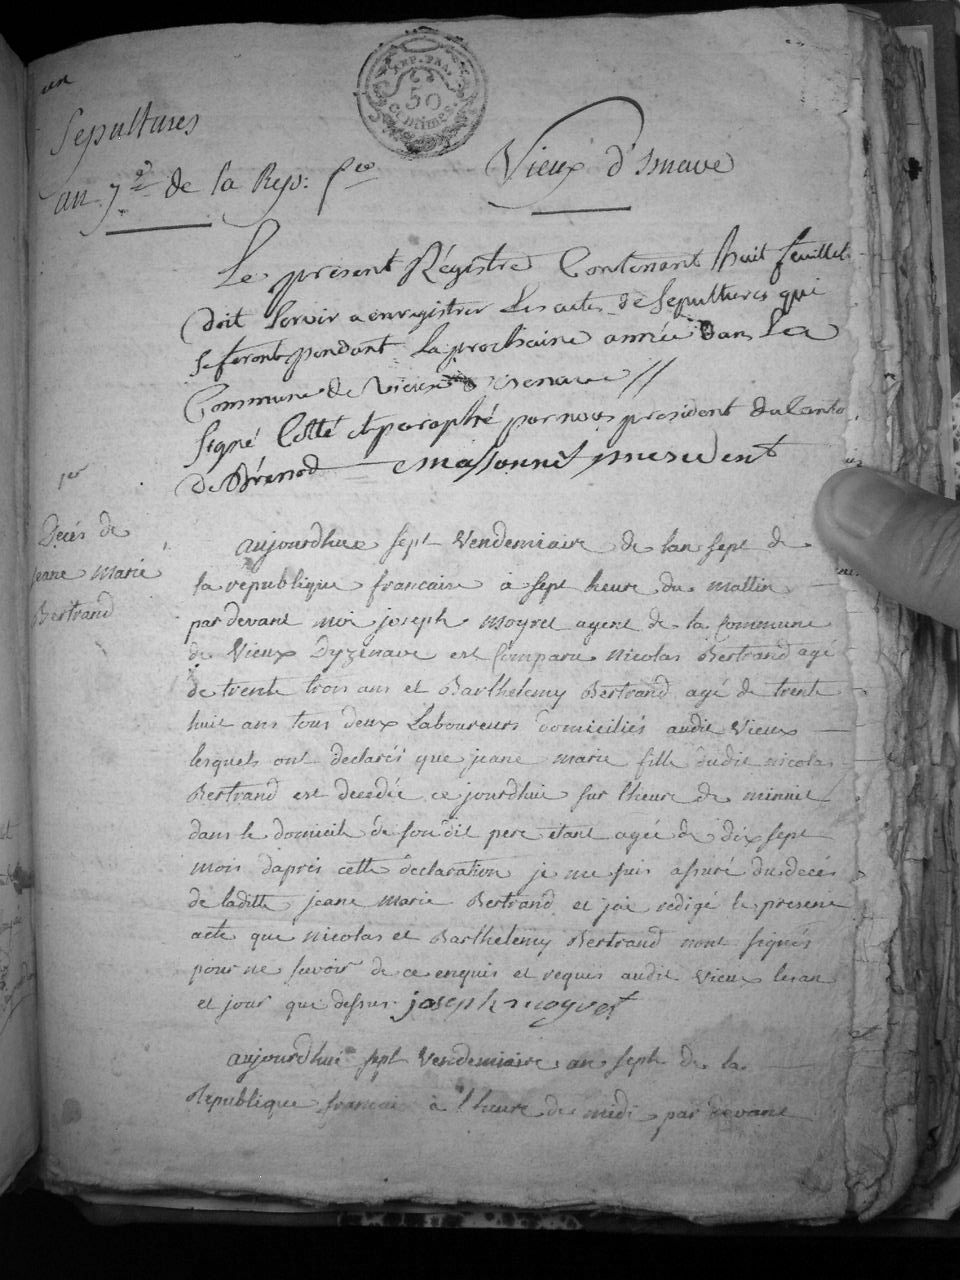 un
REP. FRA.
50
centimes.
Sepultures
an 7e de la Rep: fse
Vieux d'Isnave
Le présent Régistre Contenant huit feuillet
doit servir a enregistrer Les actes de Sepultures qui
se feront pendant La prochaine année dans La
Commune de Vieux d'izenave //
Signé Cotté et paraphé par nous president du Canto
de Brénod Massonnet president
1er
Decés de
jeane Marie
Bertrand
aujourdhui sept Vendemiaire de lan sept de
la republique francaise à sept heure du mattin
par devant moi joseph Moyret agent de la Commune
de Vieux Dyzenave est Comparu Nicolas Bertrand agé
de trente trois ans et Barthelemy Bertrand agé de trente
huit ans tous deux Laboureurs domiciliés audit Vieux
lesquels ont declarés que jeane Marie fille dudit nicolas
Bertrand est decedée ce jourdhui sur lheure de minuit
dans le domicile de son dit pere etant agée de dix sept
mois daprès cette declaration je me suis assuré du decés
de laditte jeane Marie Bertrand et jai redigé le present
acte que Nicolas et Barthelemy Bertrand nont signés
pour ne savoir de ce enquis et requis audit Vieux lesan
et jour que dessus. joseph moyret
aujourdhui sept Vendemiaire an sept de la
Republique francaise à l'heure de midi par devant